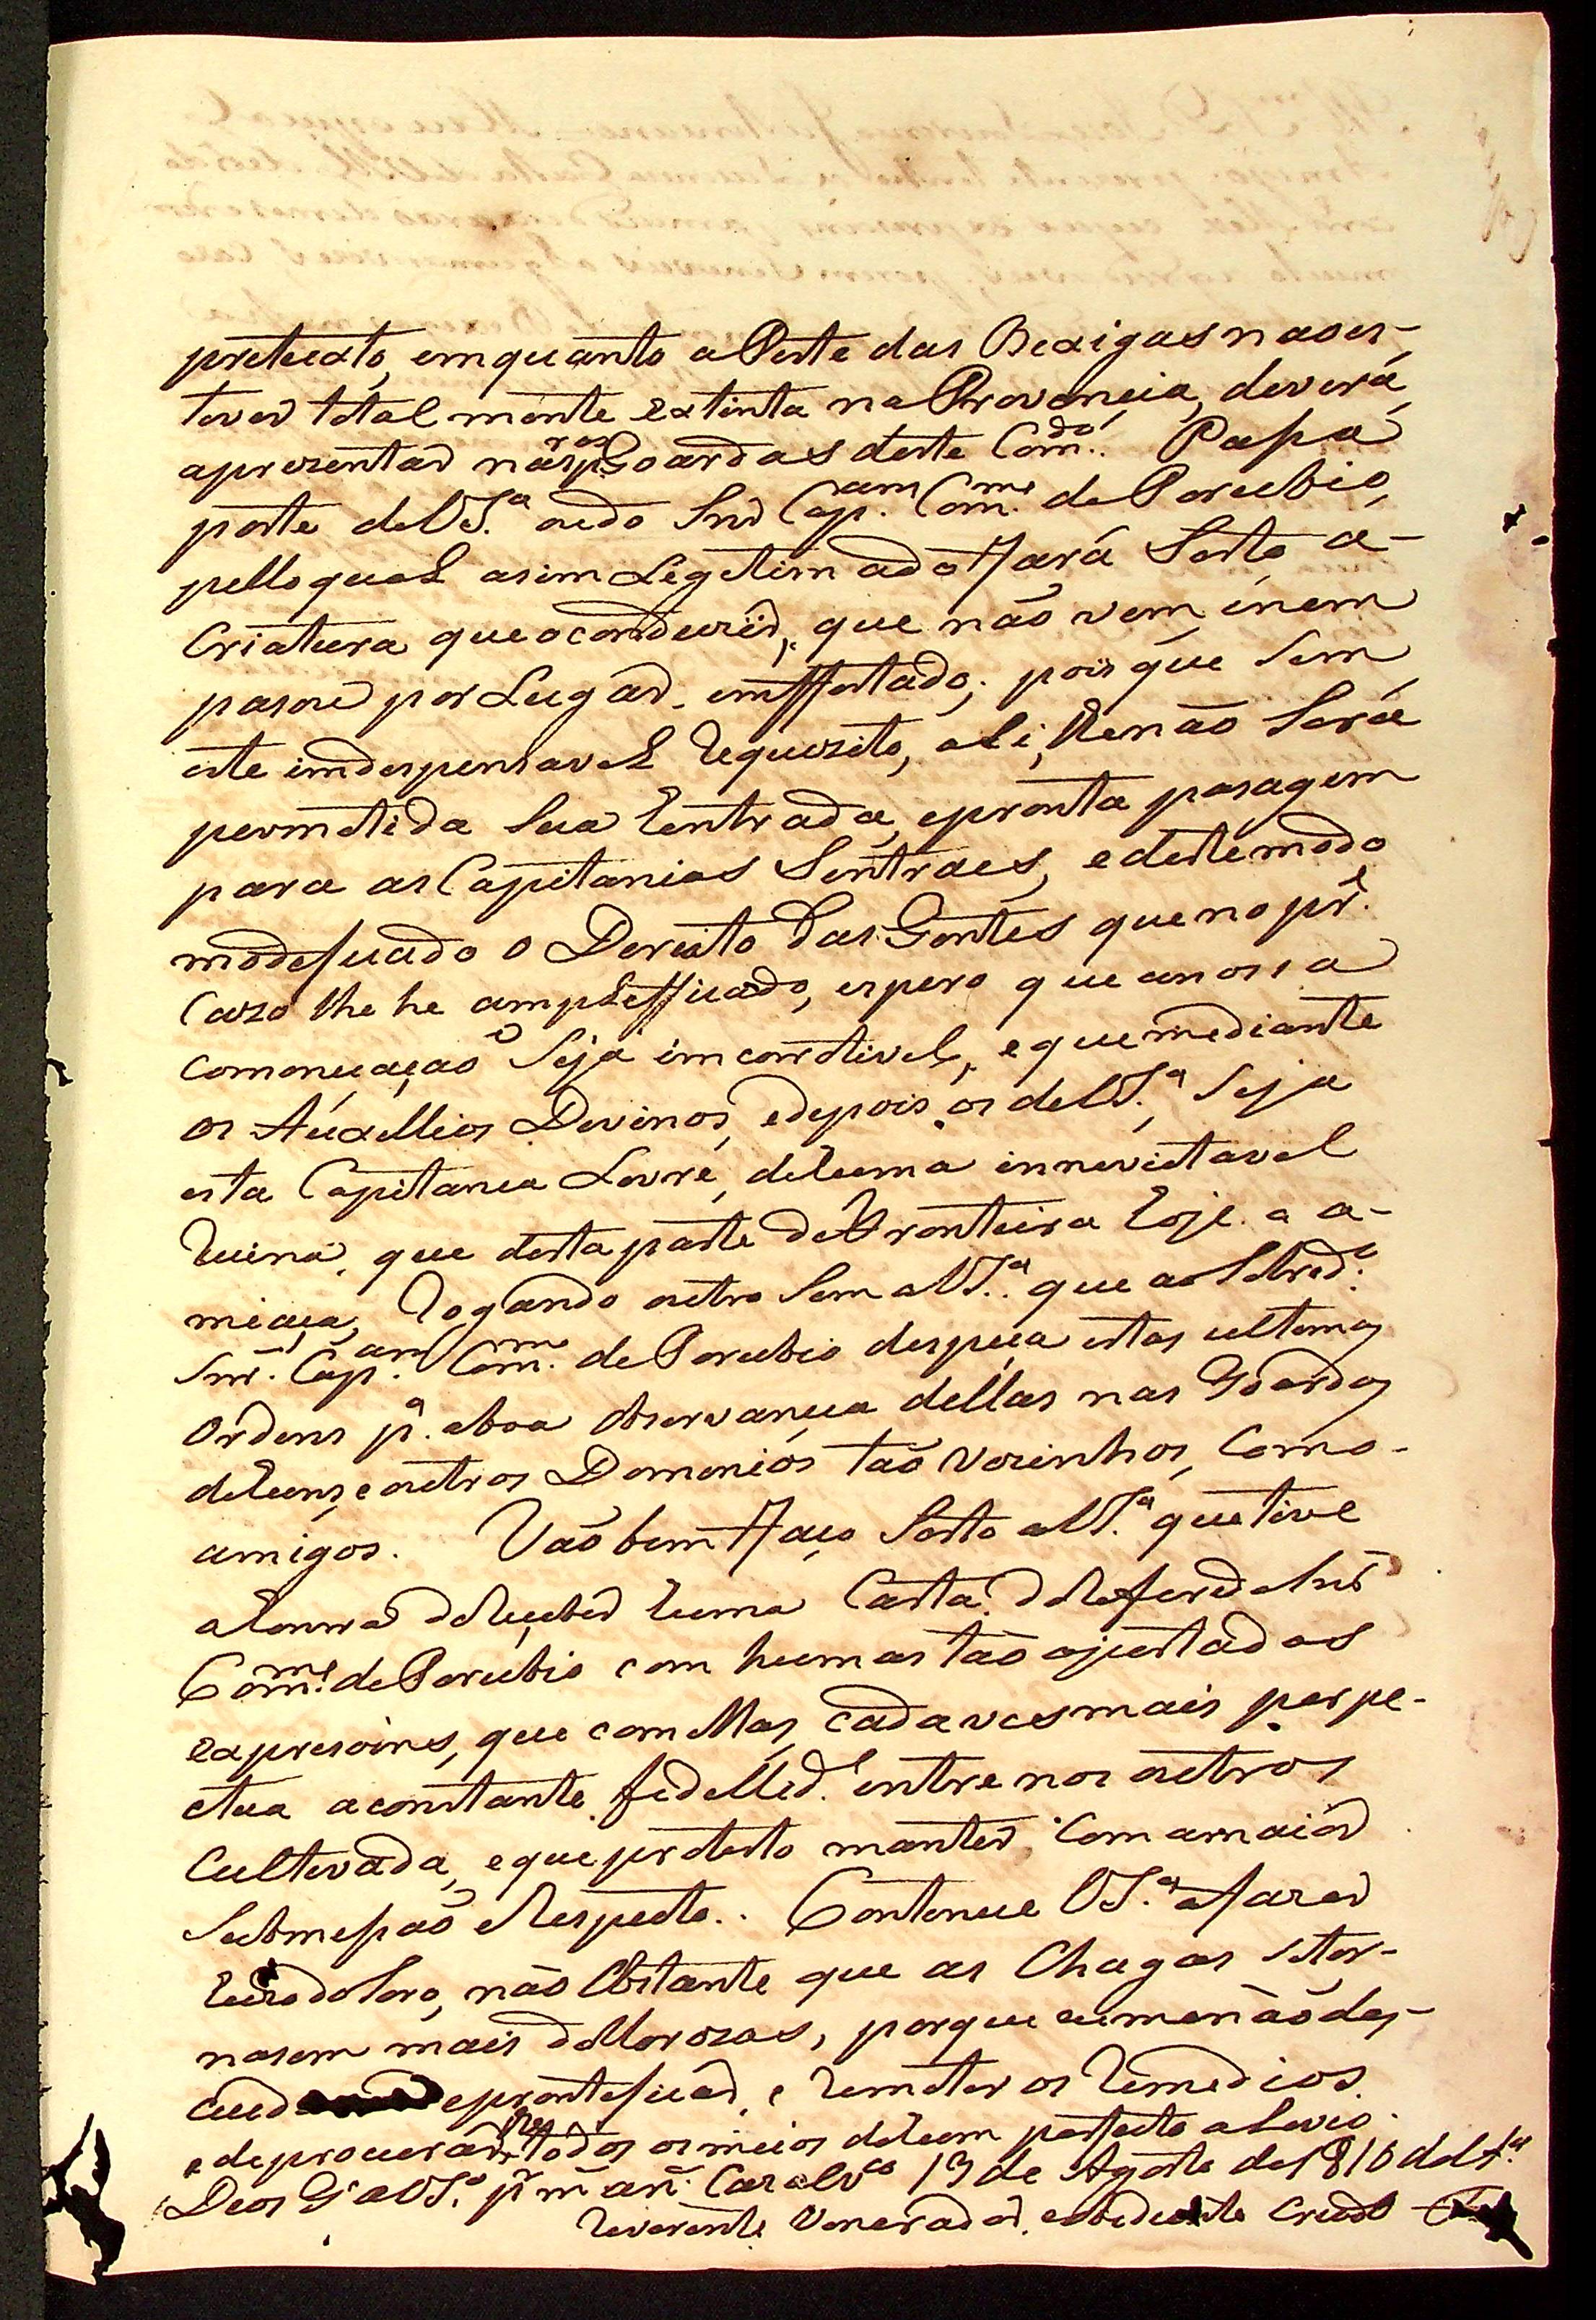 pretexto, emquanto a Peste das Bexigas nao es-
tever total mente extinta na Provencia, deverá
aprezentar nas pras Goardas deste Comdo. Pasa
porte de V.S.a ou do Snr Cap.am Com.me de Porubio,
pello qual asim Legetimado Fará Serto a-
Criatura que o conduzir, que não vem, i nem
pasou por Lugar emffestado; pois que Sem
este imdespensavel Requezito, ali, lhe não Será
permetida Sua Entrada, e pronta pasagem
para as Capitanias Sentraes, e deste modo
modeficado o Dereito das Gentes que no pre.
Cazo lhe he amplefficado, espero que a nossa
Comonicação Seja imcorrtivel, e que mediante
os Auxellios Devinos, e depois os de V.S.a Seja
esta Capitanea Levre, de huma innevictavel
Ruina, que desta parte de Fronteira Hoje a a-
miaça, Rogando outro Sem a V.S.a que ao Sobred.e
Snr. Cap.am Com.me de Porubio despeça estas ultemas
Ordens p.a a boa observancia dellas nas Goardas
de huns, e outros Domenios tão Vezinhos, Como-
amigos. Vão bem Faço Serto a V.S.a que tive
a honra de Receber huma Carta do Referido Snr
Com.me de Porubio com humas tão ajustadas
expresoins, que com ellas, cada ves mais perpe-
ctua a constante fedelled.e entre nos outros
Cultevada, e que protesto manter Com a maior
Submesão e Respecto. Contenue V.S.a a fazer
não Obstante que as Chagas se tor-
nasem mais dollorozas, porque eu me não des-
cuido e pronteficar, e Remeter os Remedios
e de procurar todos os meios de hum perfecto alivio.
Deos G.e a V.S.a p.r m.s an.s Cazalv.co 19 de Agosto de 1810 de V.S.a
Reverente Venerador, e obediente Criado